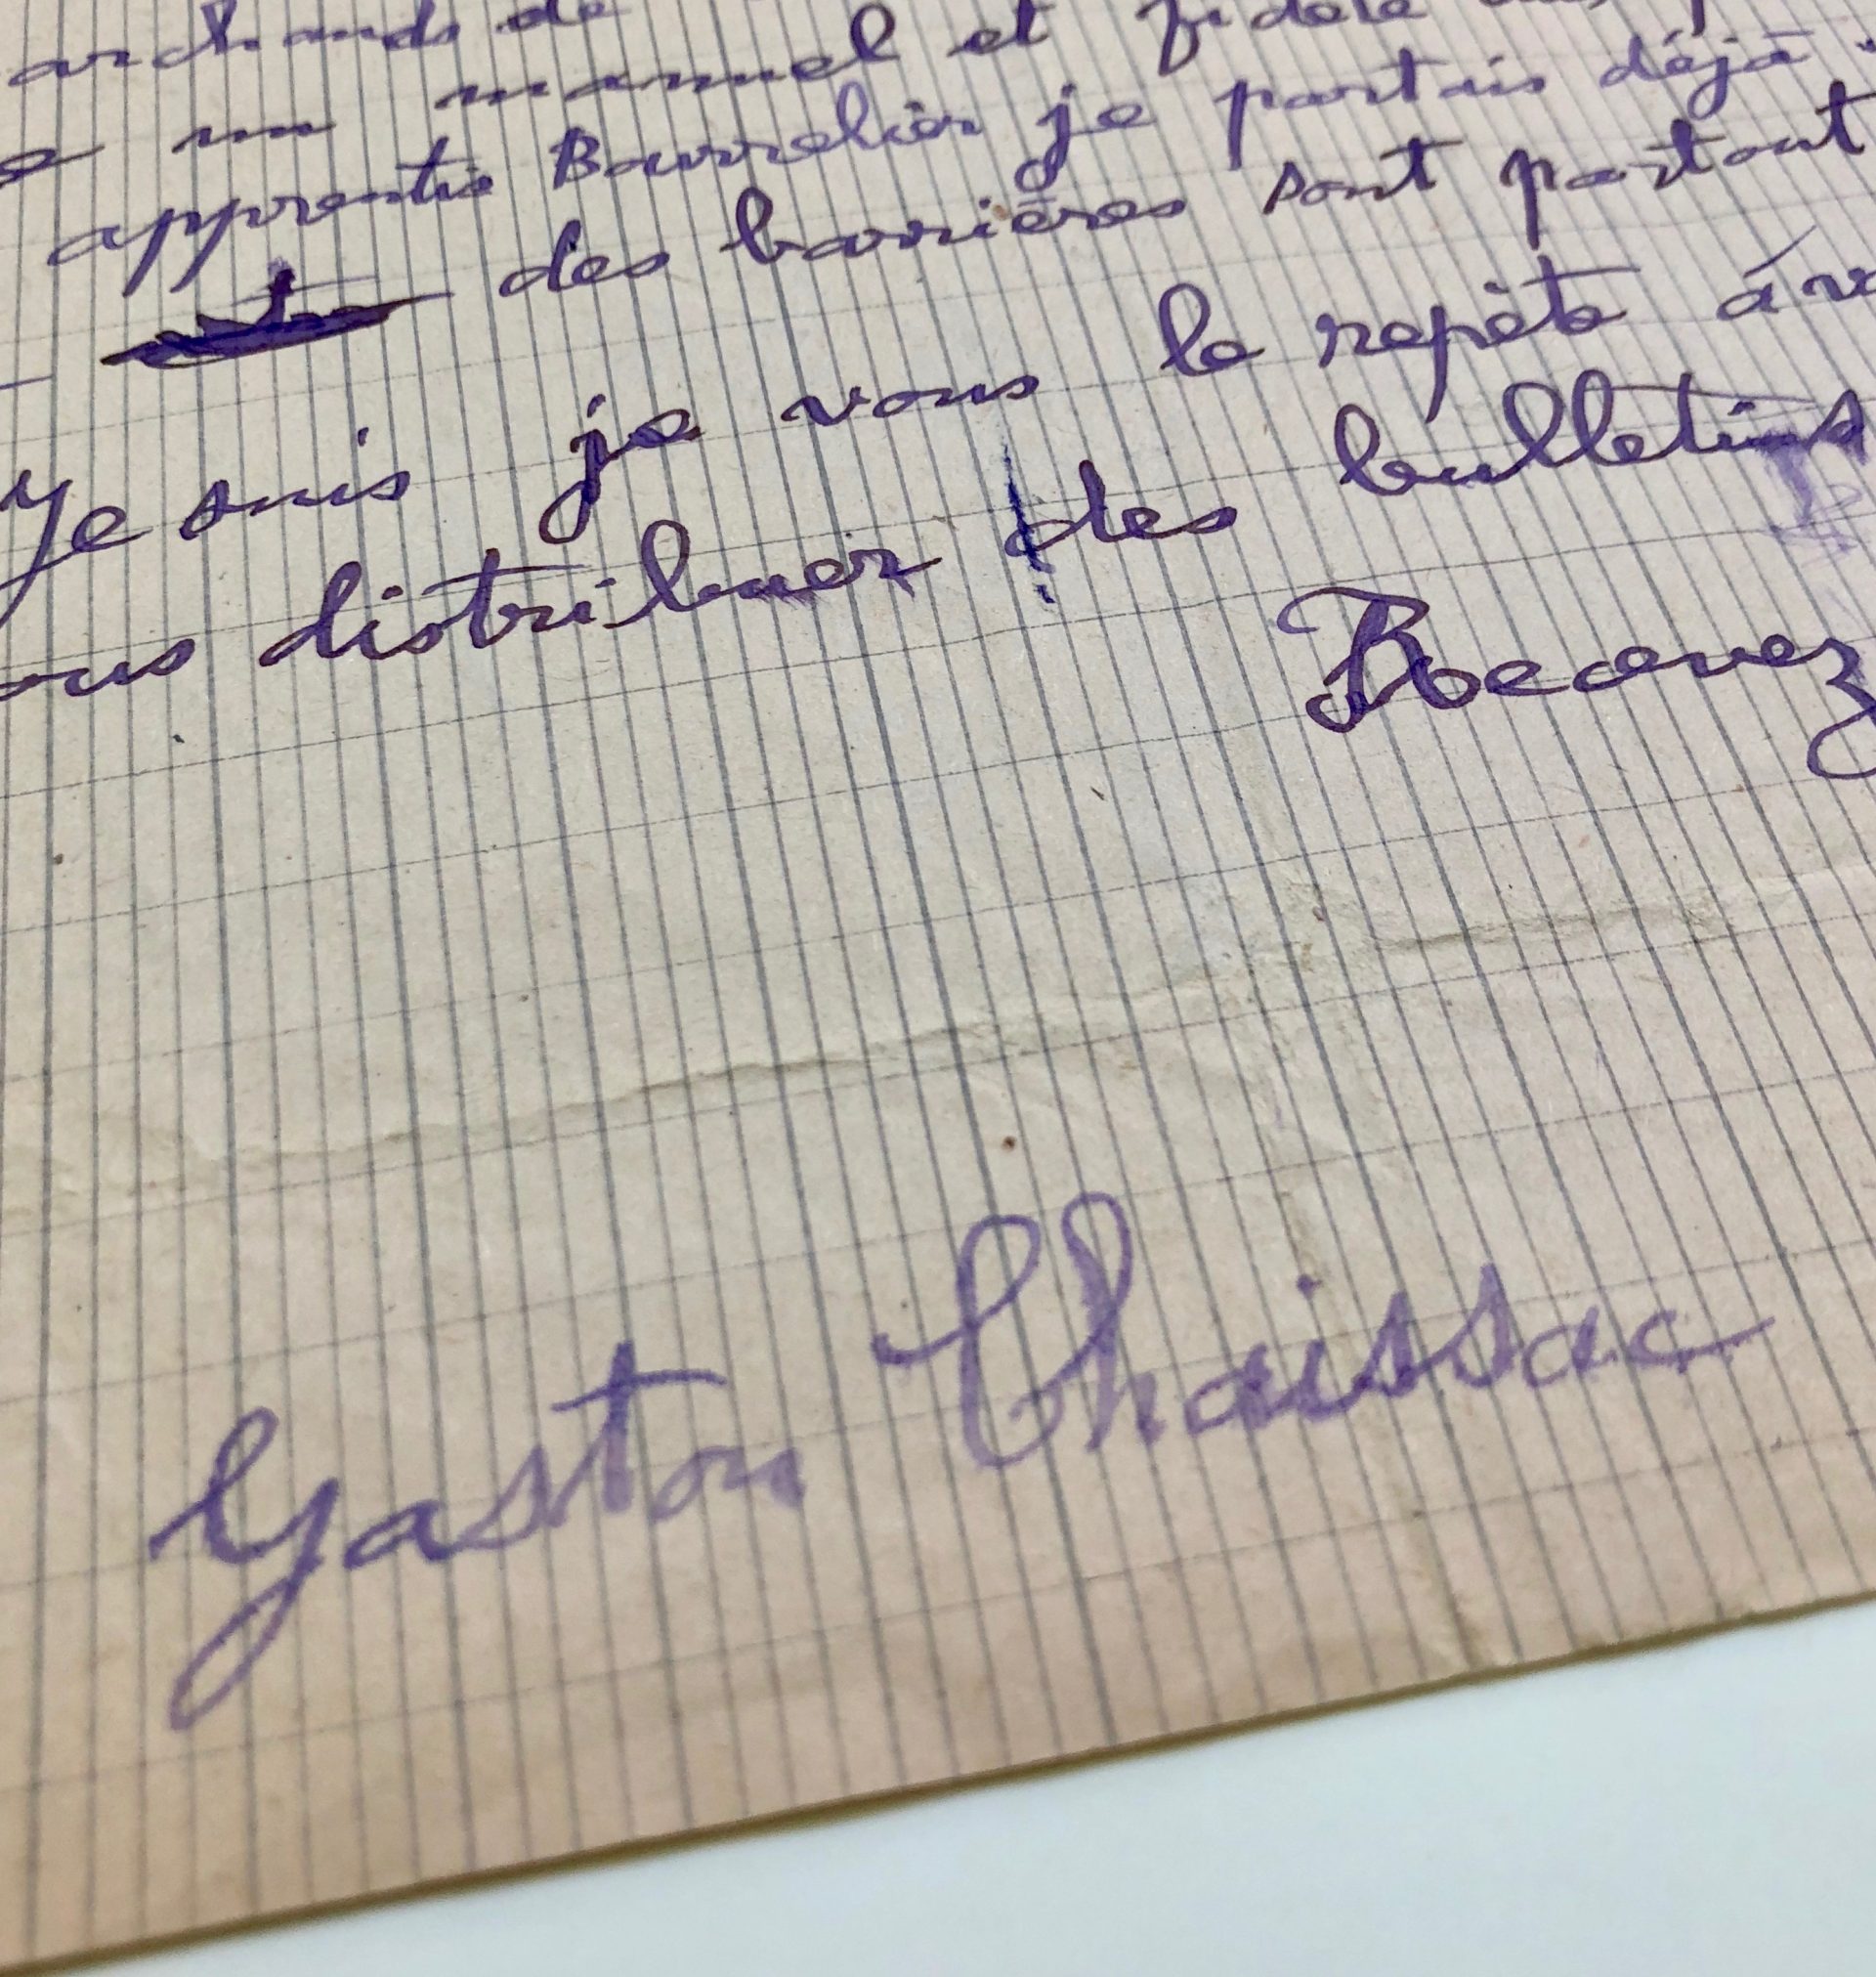 archands de
un manuel et fidèle
apprentis Bourrelier je partais déjà
des barrières sont partout
Je suis je vous le repète
ous distribuer des bulletins
Recevez
Gaston Chaissac